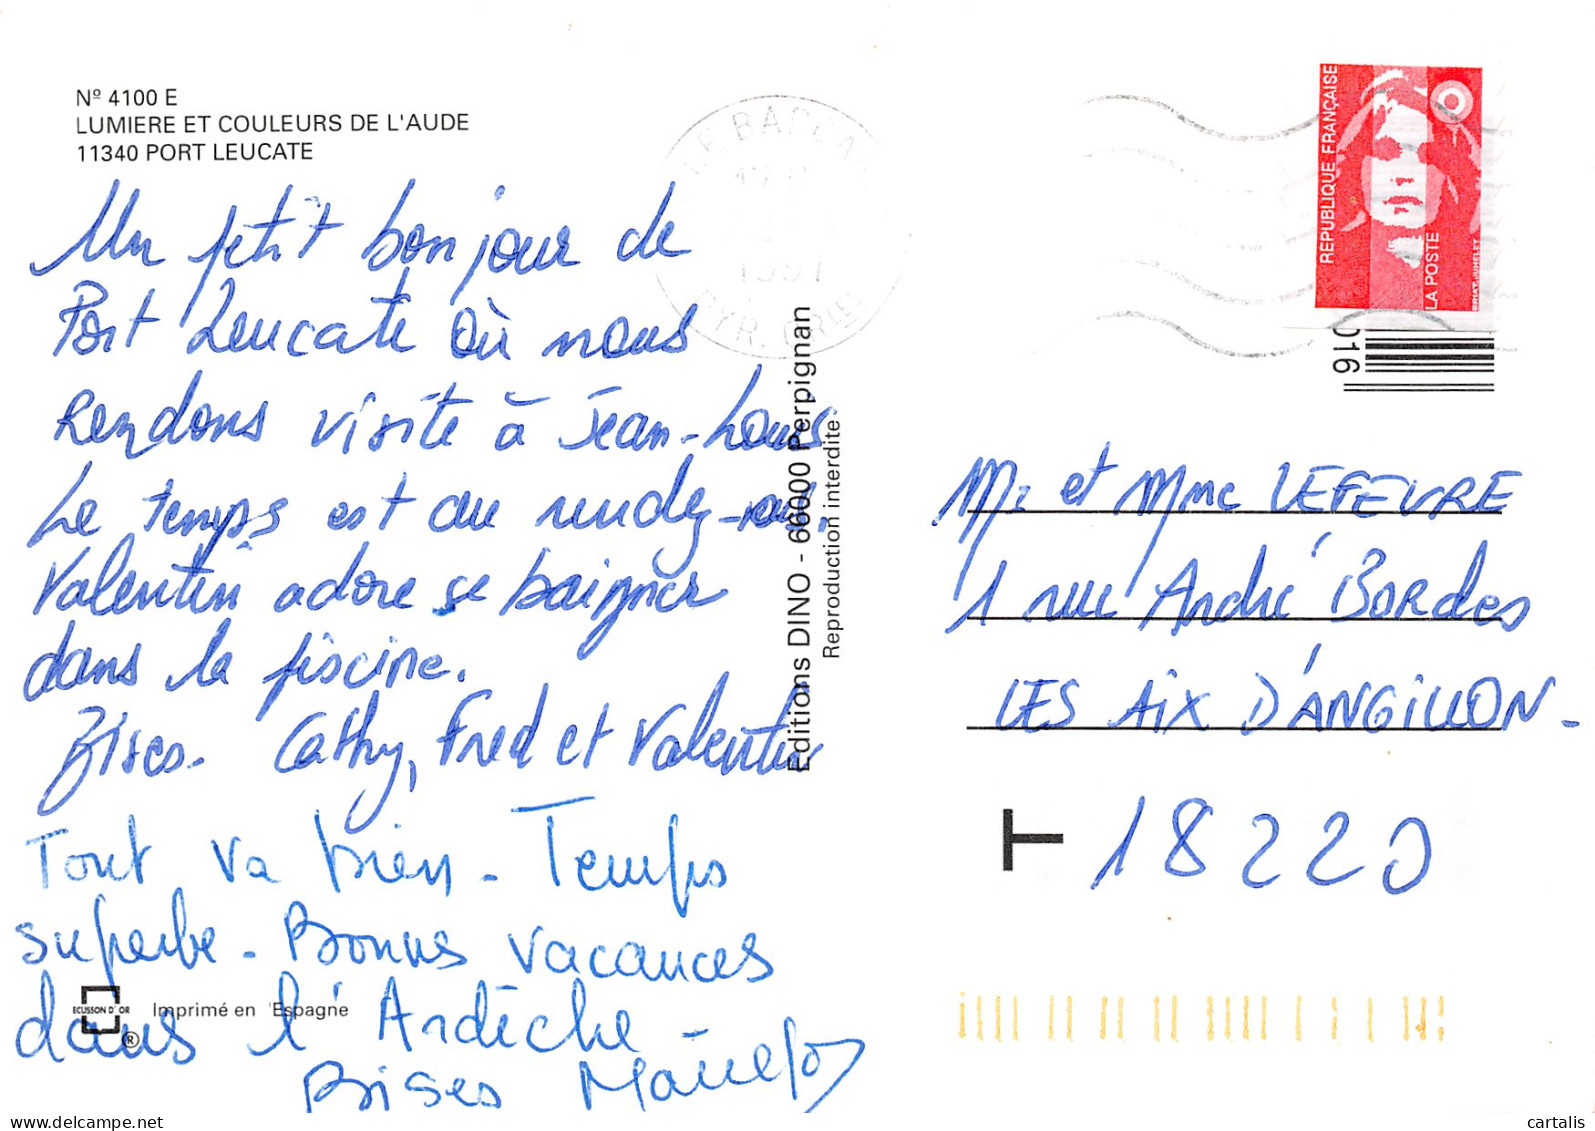 Nº 4100 E
LUMIERE ET COULEURS DE L'AUDE
11340 PORT LEUCATE
Un petit bonjour de
Port Leucate où nous
rendons visite à Jean-Louis.
Le temps est au rendez-vous.
Valentin adore se baigner
dans la piscine.
Bises. Cathy, Fred et Valentin
Tout va bien - Temps
superbe - Bonnes vacances
dans l'Ardèche
Bises
ECUSSON D'OR
®
Imprimé en Espagne
Editions DINO - 66000 Perpignan
Reproduction interdite
LE BARCA
1991
PYR. ORLES
REPUBLIQUE FRANÇAISE
LA POSTE
016
Mr et Mme LEFEVRE
1 rue André Bordes
LES AIX D'ANGILLON -
T 18220
delcampe.net
cartalis